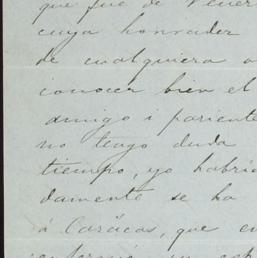 que fue de Vener
cuya honradez
de cualquiera o
conocer bien el
amigo i pariente
no tengo duda
tiempo, yo habria
damente se ha
á Carácas, que en